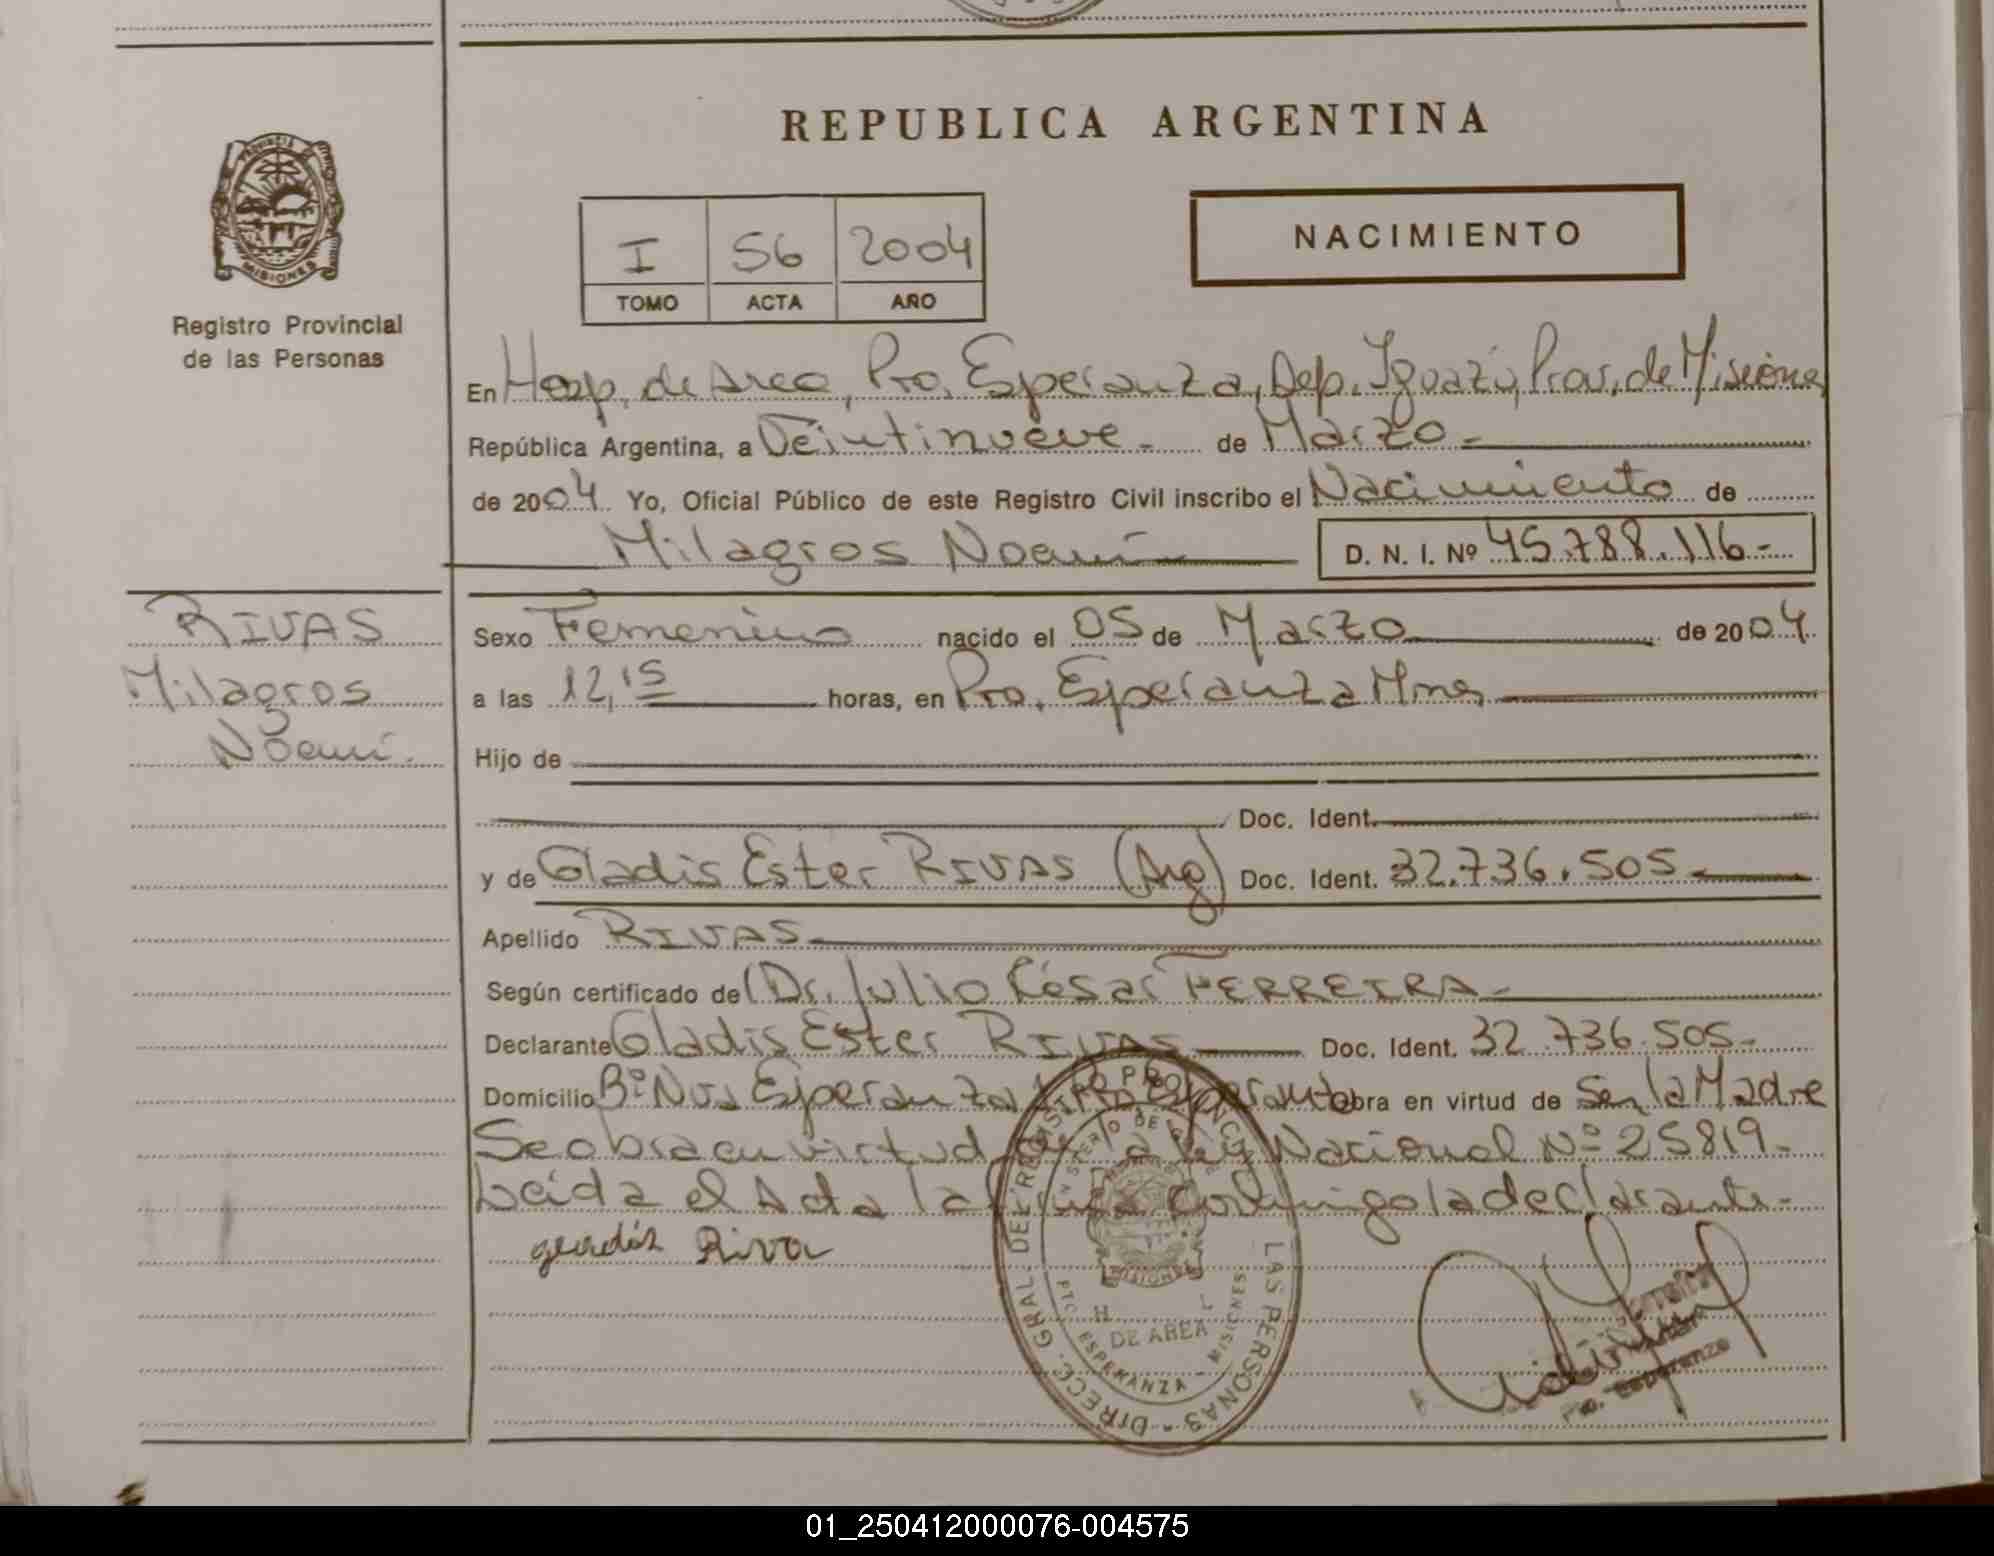 REPUBLICA ARGENTINA
PROVINCIA DE
MISIONES
Registro Provincial
de las Personas
I 56 2004
TOMO ACTA AÑO
NACIMIENTO
En Hosp. de Area, Pto. Esperanza, Dep. Iguazú, Prov. de Misiones
República Argentina, a Veintinueve - de Marzo -
de 2004 Yo, Oficial Público de este Registro Civil inscribo el Nacimiento de
Milagros Noemí
D. N. I. Nº 45.788.116-
RIVAS
Milagros
Noemí.
Sexo Femenino nacido el 05 de Marzo de 2004
a las 12,15 horas, en Pto. Esperanza Mnes
Hijo de
Doc. Ident.
y de Gladis Ester RIVAS (Arg) Doc. Ident. 32.736.505
Apellido RIVAS
Según certificado de Dr. Julio César FERREIRA-
Declarante Gladis Ester RIVAS Doc. Ident. 32.736.505-
Domicilio Bº Nva Esperanza Pto Esperanza obra en virtud de Ser la Madre
Se obra en virtud de la ley Nacional Nº 25819-
Leída el Acta la firma conmigo la declarante-
Riva
DIRECC. GRAL. DEL REGISTRO PROVINCIAL DE LAS PERSONAS
MINISTERIO DE
MISIONES
DE AREA
PTO. ESPERANZA - MISIONES
Pto. Esperanza
01_250412000076-004575